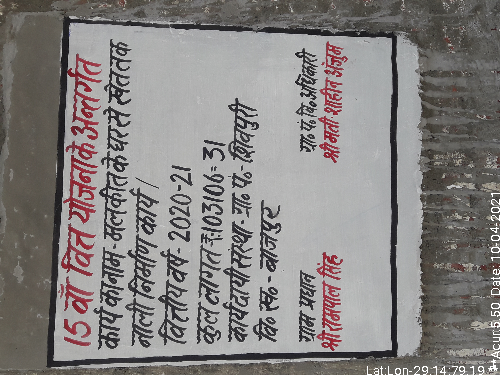 15 वाँ वित्त योजना के अन्तर्गत
कार्य का नाम - मलकीत के घर से खेत तक
नाली निर्माण कार्य /
वित्तीय वर्ष 2020-21
कुल लागत रू:103106=31
कार्यदायी संस्था -ग्रा० पं० शिवपुरी
वि० ख० बाजपुर
ग्राम प्रधान
श्री रामपाल सिंह
ग्रा० पं० वि० अधिकारी
श्री मती शाहीन अंजुम
Lat:Lon-29.14:79.19
Acur 5.50 Date: 10-04-2021